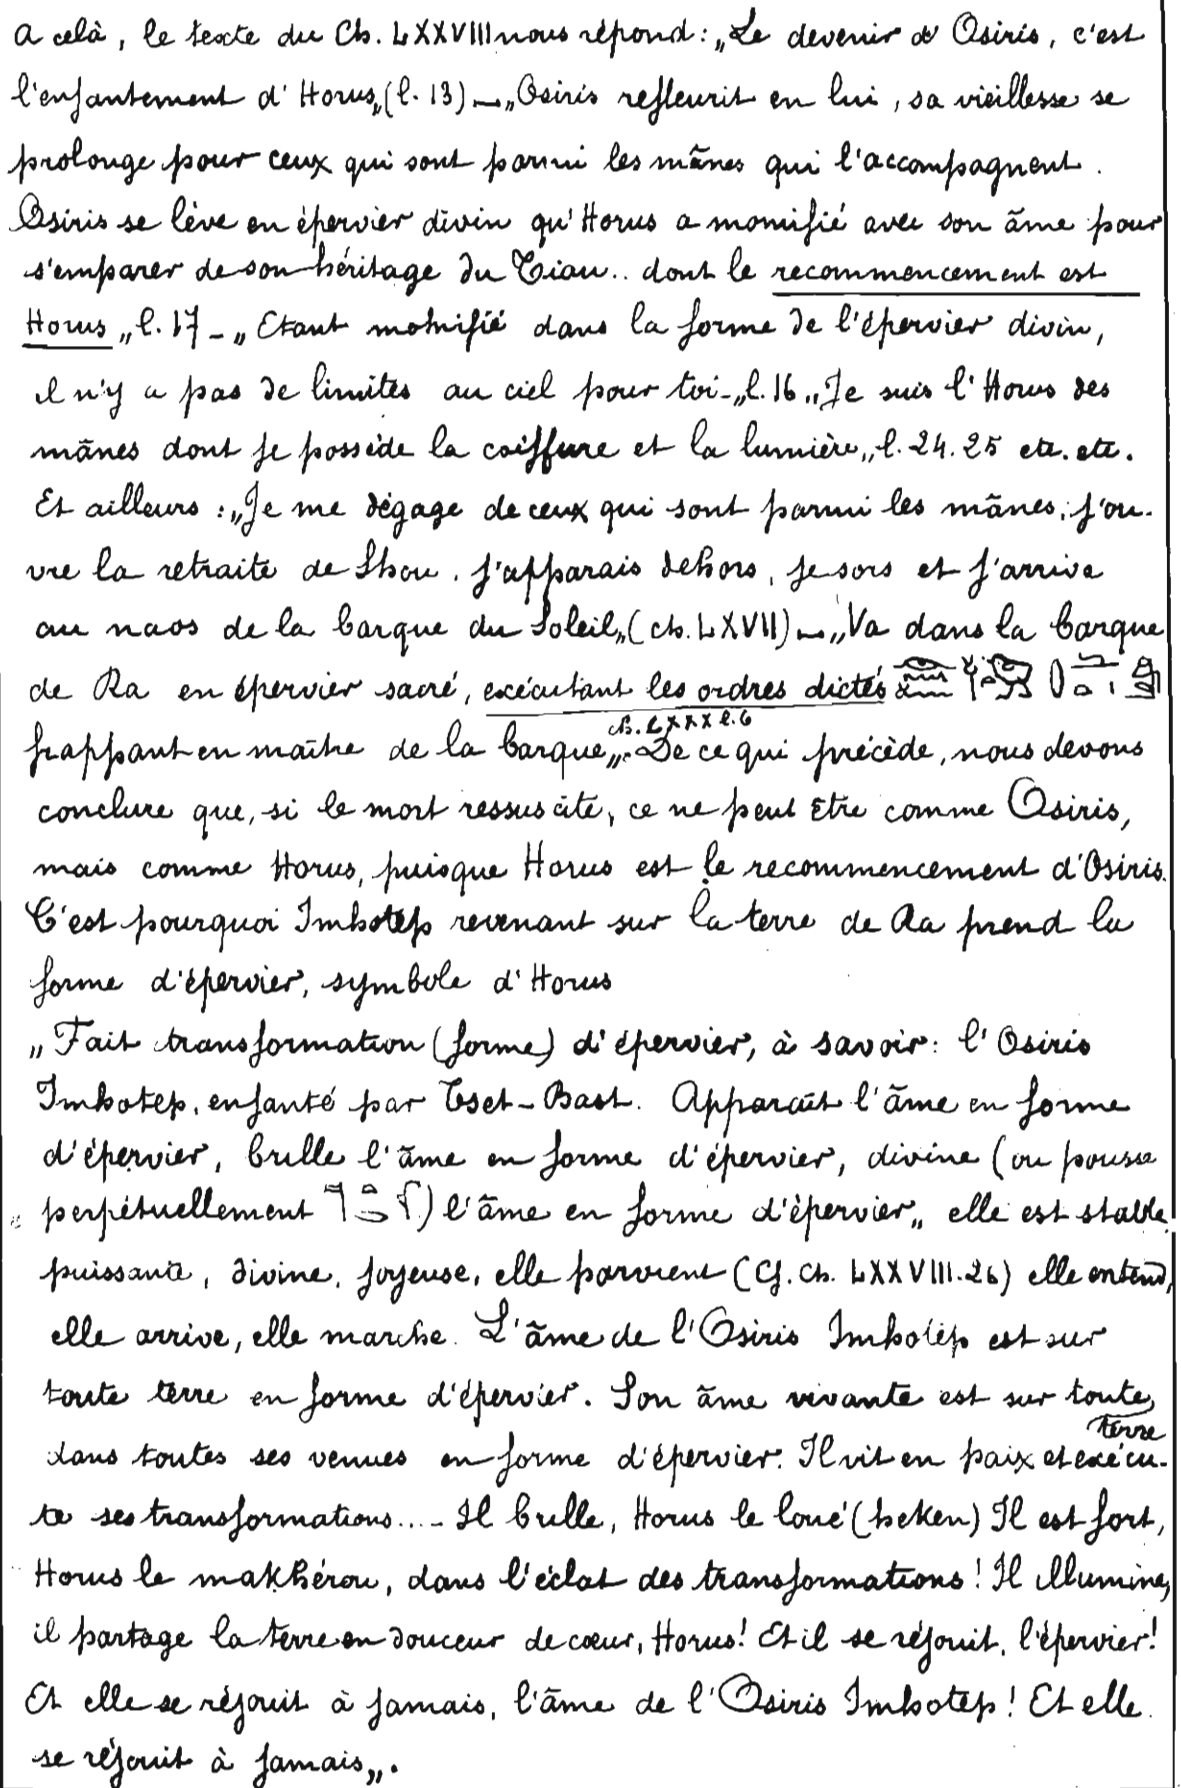 a celà, le texte du Ch. LXXVIII nous répond: „Le devenir d'Osiris, c'est
l'enfantement d'Horus„ (l. 13) — „Osiris refleurit en lui, sa vieillesse se
prolonge pour ceux qui sont parmi les mānes qui l'accompagnent.
Osiris se lève en épervier divin qu'Horus a momifié avec son āme pour
s'emparer de son héritage du Tiau.. dont le recommencement est
Horus „ l. 17 - „ Etant momifié dans la forme de l'épervier divin,
il n'y a pas de limites au ciel pour toi - „ l. 16 „ Je suis l'Horus des
mānes dont je possède la coiffure et la lumière„ l. 24. 25 etc. etc.
Et ailleurs : „Je me dégage de ceux qui sont parmi les mānes; j'ou-
vre la retraite de Shou. j'apparais dehors, je sors et j'arrive
au naos de la barque du Soleil„ (ch. LXVII) — „Va dans la barque
de Ra en épervier sacré, exécutant les ordres dictés
ch. LXXX l. 6
frappant en maître de la barque„. De ce qui précède, nous devons
conclure que, si le mort ressuscite, ce ne peut être comme Osiris,
mais comme Horus, puisque Horus est le recommencement d'Osiris.
C'est pourquoi Imhotep revenant sur la terre de Ra prend la
forme d'épervier, symbole d'Horus
„ Fait transformation (forme) d'épervier, à savoir: l'Osiris
Imhotep, enfanté par Tset-Bast. Apparaît l'āme en forme
d'épervier, brille l'āme en forme d'épervier, divine (ou pousse
perpétuellement ) l'āme en forme d'épervier„ elle est stable,
puissante, divine, joyeuse, elle parvient (Cf. Ch. LXXVIII. 26) elle entend,
elle arrive, elle marche. L'āme de l'Osiris Imhotep est sur
toute terre en forme d'épervier. Son āme vivante est sur toute
terre
dans toutes ses venues en forme d'épervier. Il vit en paix et exécu-
te ses transformations.... - Il brille, Horus le loué (heken) Il est fort,
Horus le makhérou, dans l'éclat des transformations! Il illumine,
il partage la terre en douceur de cœur, Horus! Et il se réjouit, l'épervier!
Et elle se réjouit à jamais, l'āme de l'Osiris Imhotep! Et elle
se réjouit à jamais„.